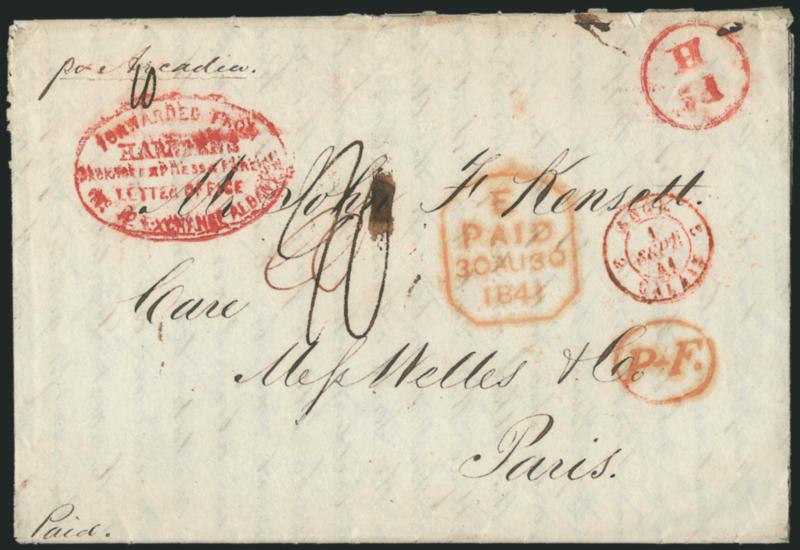 pr Arcadia.
H
51
FORWARDED FROM
HARNDEN'S
PACKAGE EXPRESS & FOREIGN
LETTER OFFICE
EXCHANGE ALBANY
Mr. John F Kensett.
E
PAID
30 AU 30
1841
ANGL.
1
SEPT
41
CALAIS
2
2
Care
Mess Welles & Co.
P.F.
Paris.
Paid.